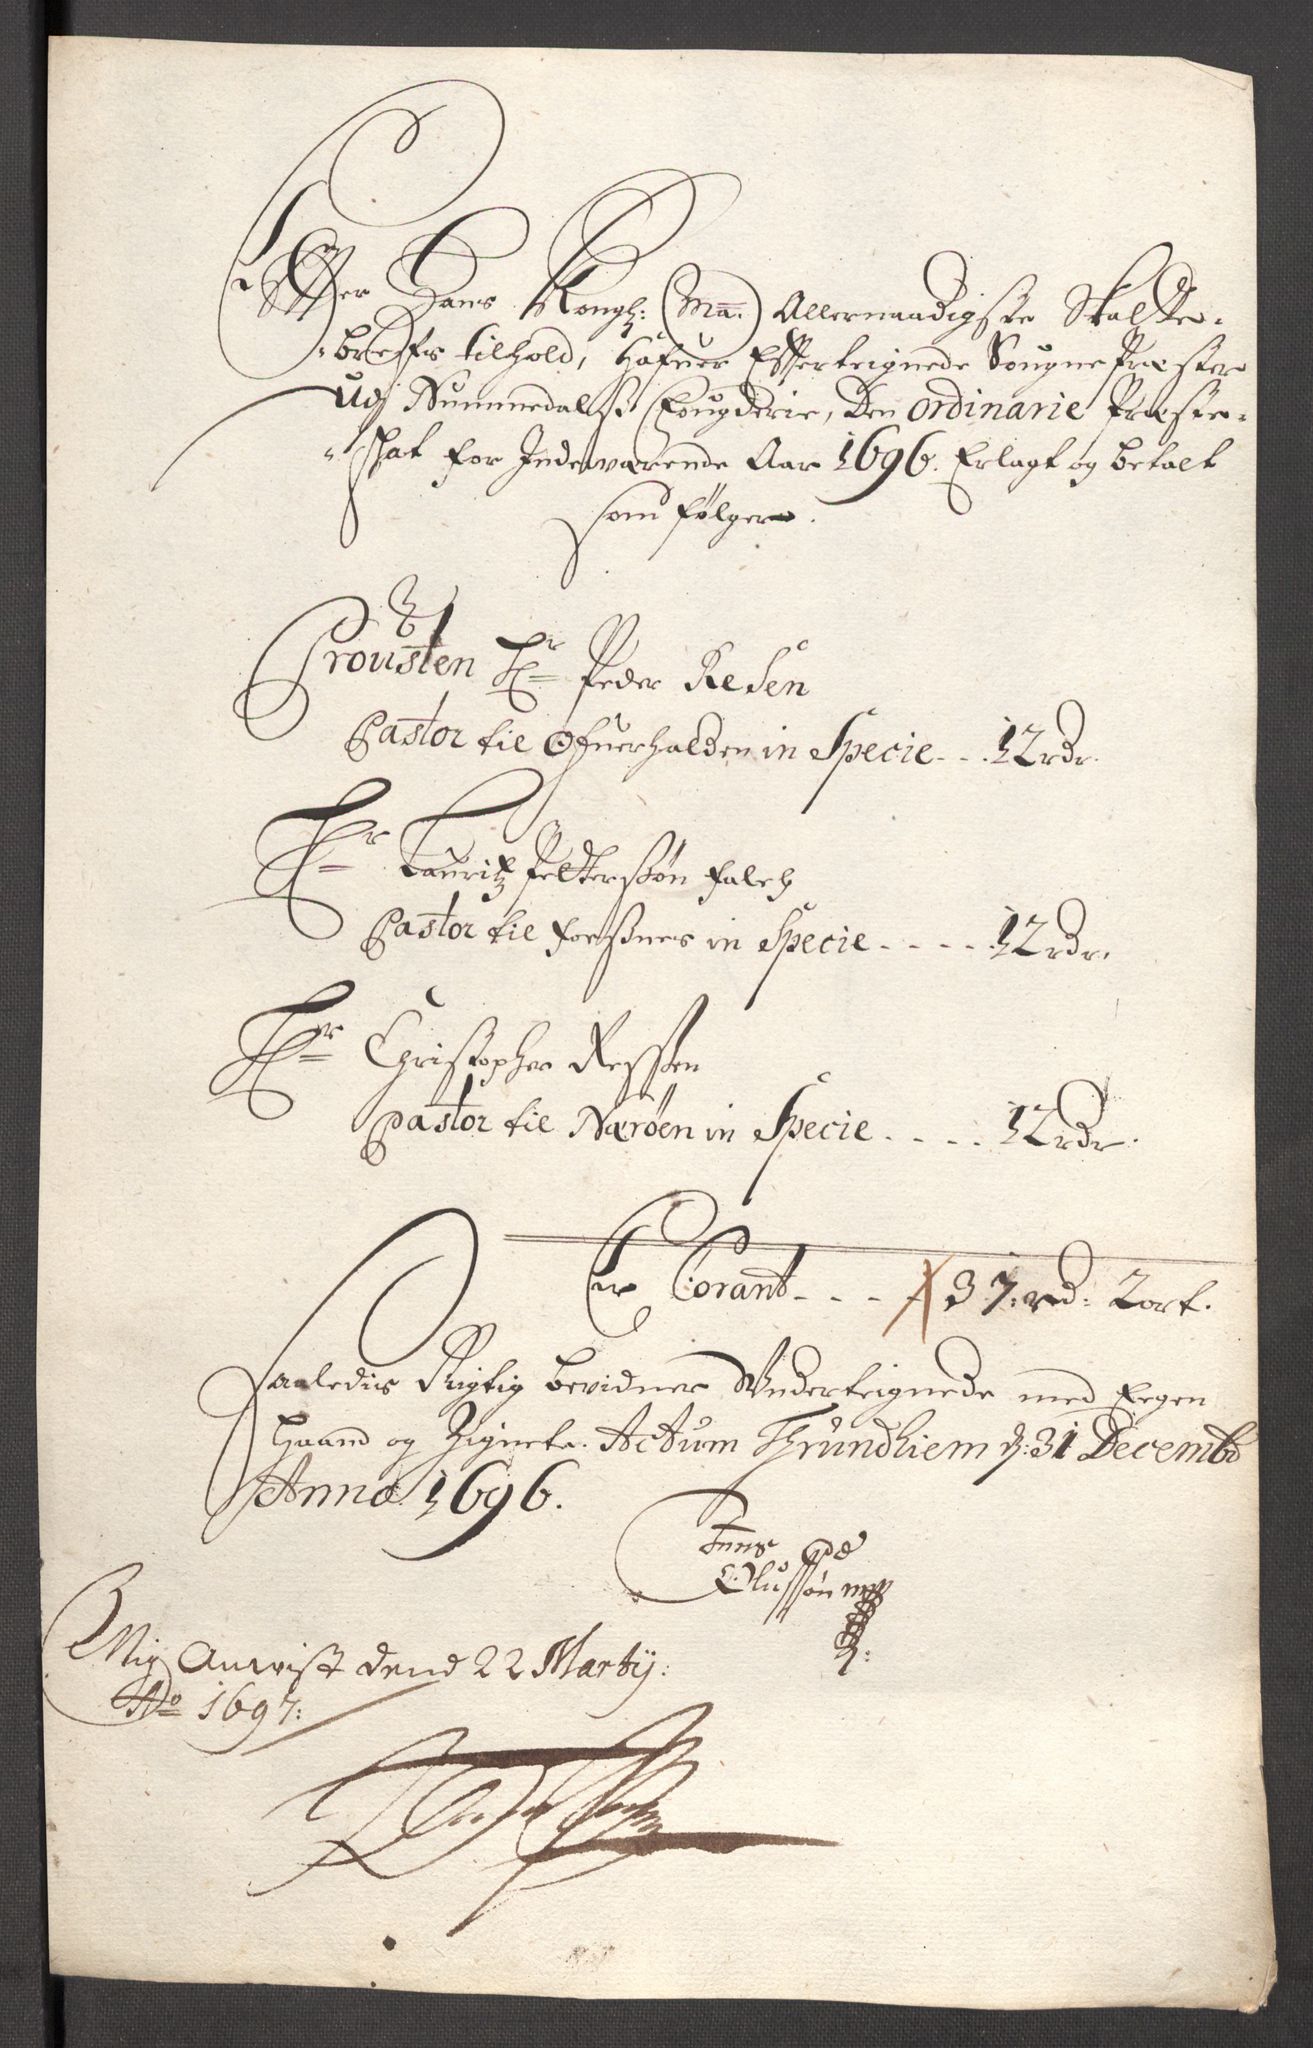 Effter Hans Kongl: (Ma:) Allernaadigste Skatte-
brefs tilhold, hafuer Effterteignede Sougne Præster
udj Nummedalß Fougderie, Den ordinarie Præste-
skat for Indeværende Aar 1696. Erlagt og betalt
som følger.
Prousten Hr Peder Resen
Pastor til Ofuerhalden in Specie - - . 12 rdr.
Hr Lauritz Pettersøn Falch
Pastor til Foeßnes in Specie - - - - 12 rdr.
Hr Christopher Ressen
Pastor til Nærøen in Specie . - - . 12 rdr.
Er Corant - - - - 37: rd: 2 ort.
Saaledis Rigtig bevidner Underteignede med Eegen
Haand og Zignete. Actum Trundhiem d: 31 Decembr
Anno 1696.
Olufsøn
Mig Anvist dend 22 Martij:
Ao 1697: